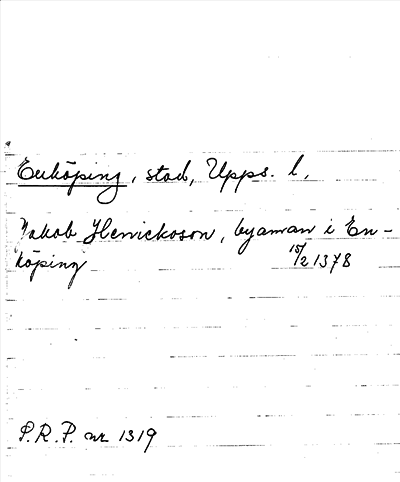 Enköping, stad, Upps. l,
Jakob Henrickoson, byaman i En-
köping 15/2 1378
P.R.P. nr 1319